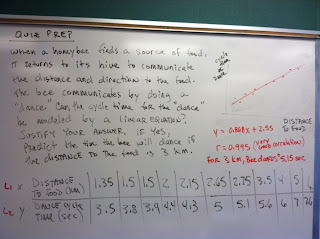 QUIZ PREP
When a honeybee finds a source of food,
IT returns to its hive to communicate
the distance and direction to the food.
The bee communicates by doing a
"dance". Can the cycle time for the "dance"
be modeled by a linear equation?
Justify your answer, if yes,
Predict the tim the bee will dance if
the distance to the food is 3 km.
cycle
time
DISTANCE
TO FOOD
y = 0.868x + 2.55
r = 0.995 (very good correlation)
For 3 km, Bee dances 5.15 sec
L1 X DISTANCE TO FOOD (km) 1.35 1.5 1.5 2 2.15 2.65 2.75 3.5 4 5
L2 Y DANCE CYCLE TIME (sec) 3.5 3.8 3.9 4.4 4.3 5 5.1 5.6 6 7 7.6